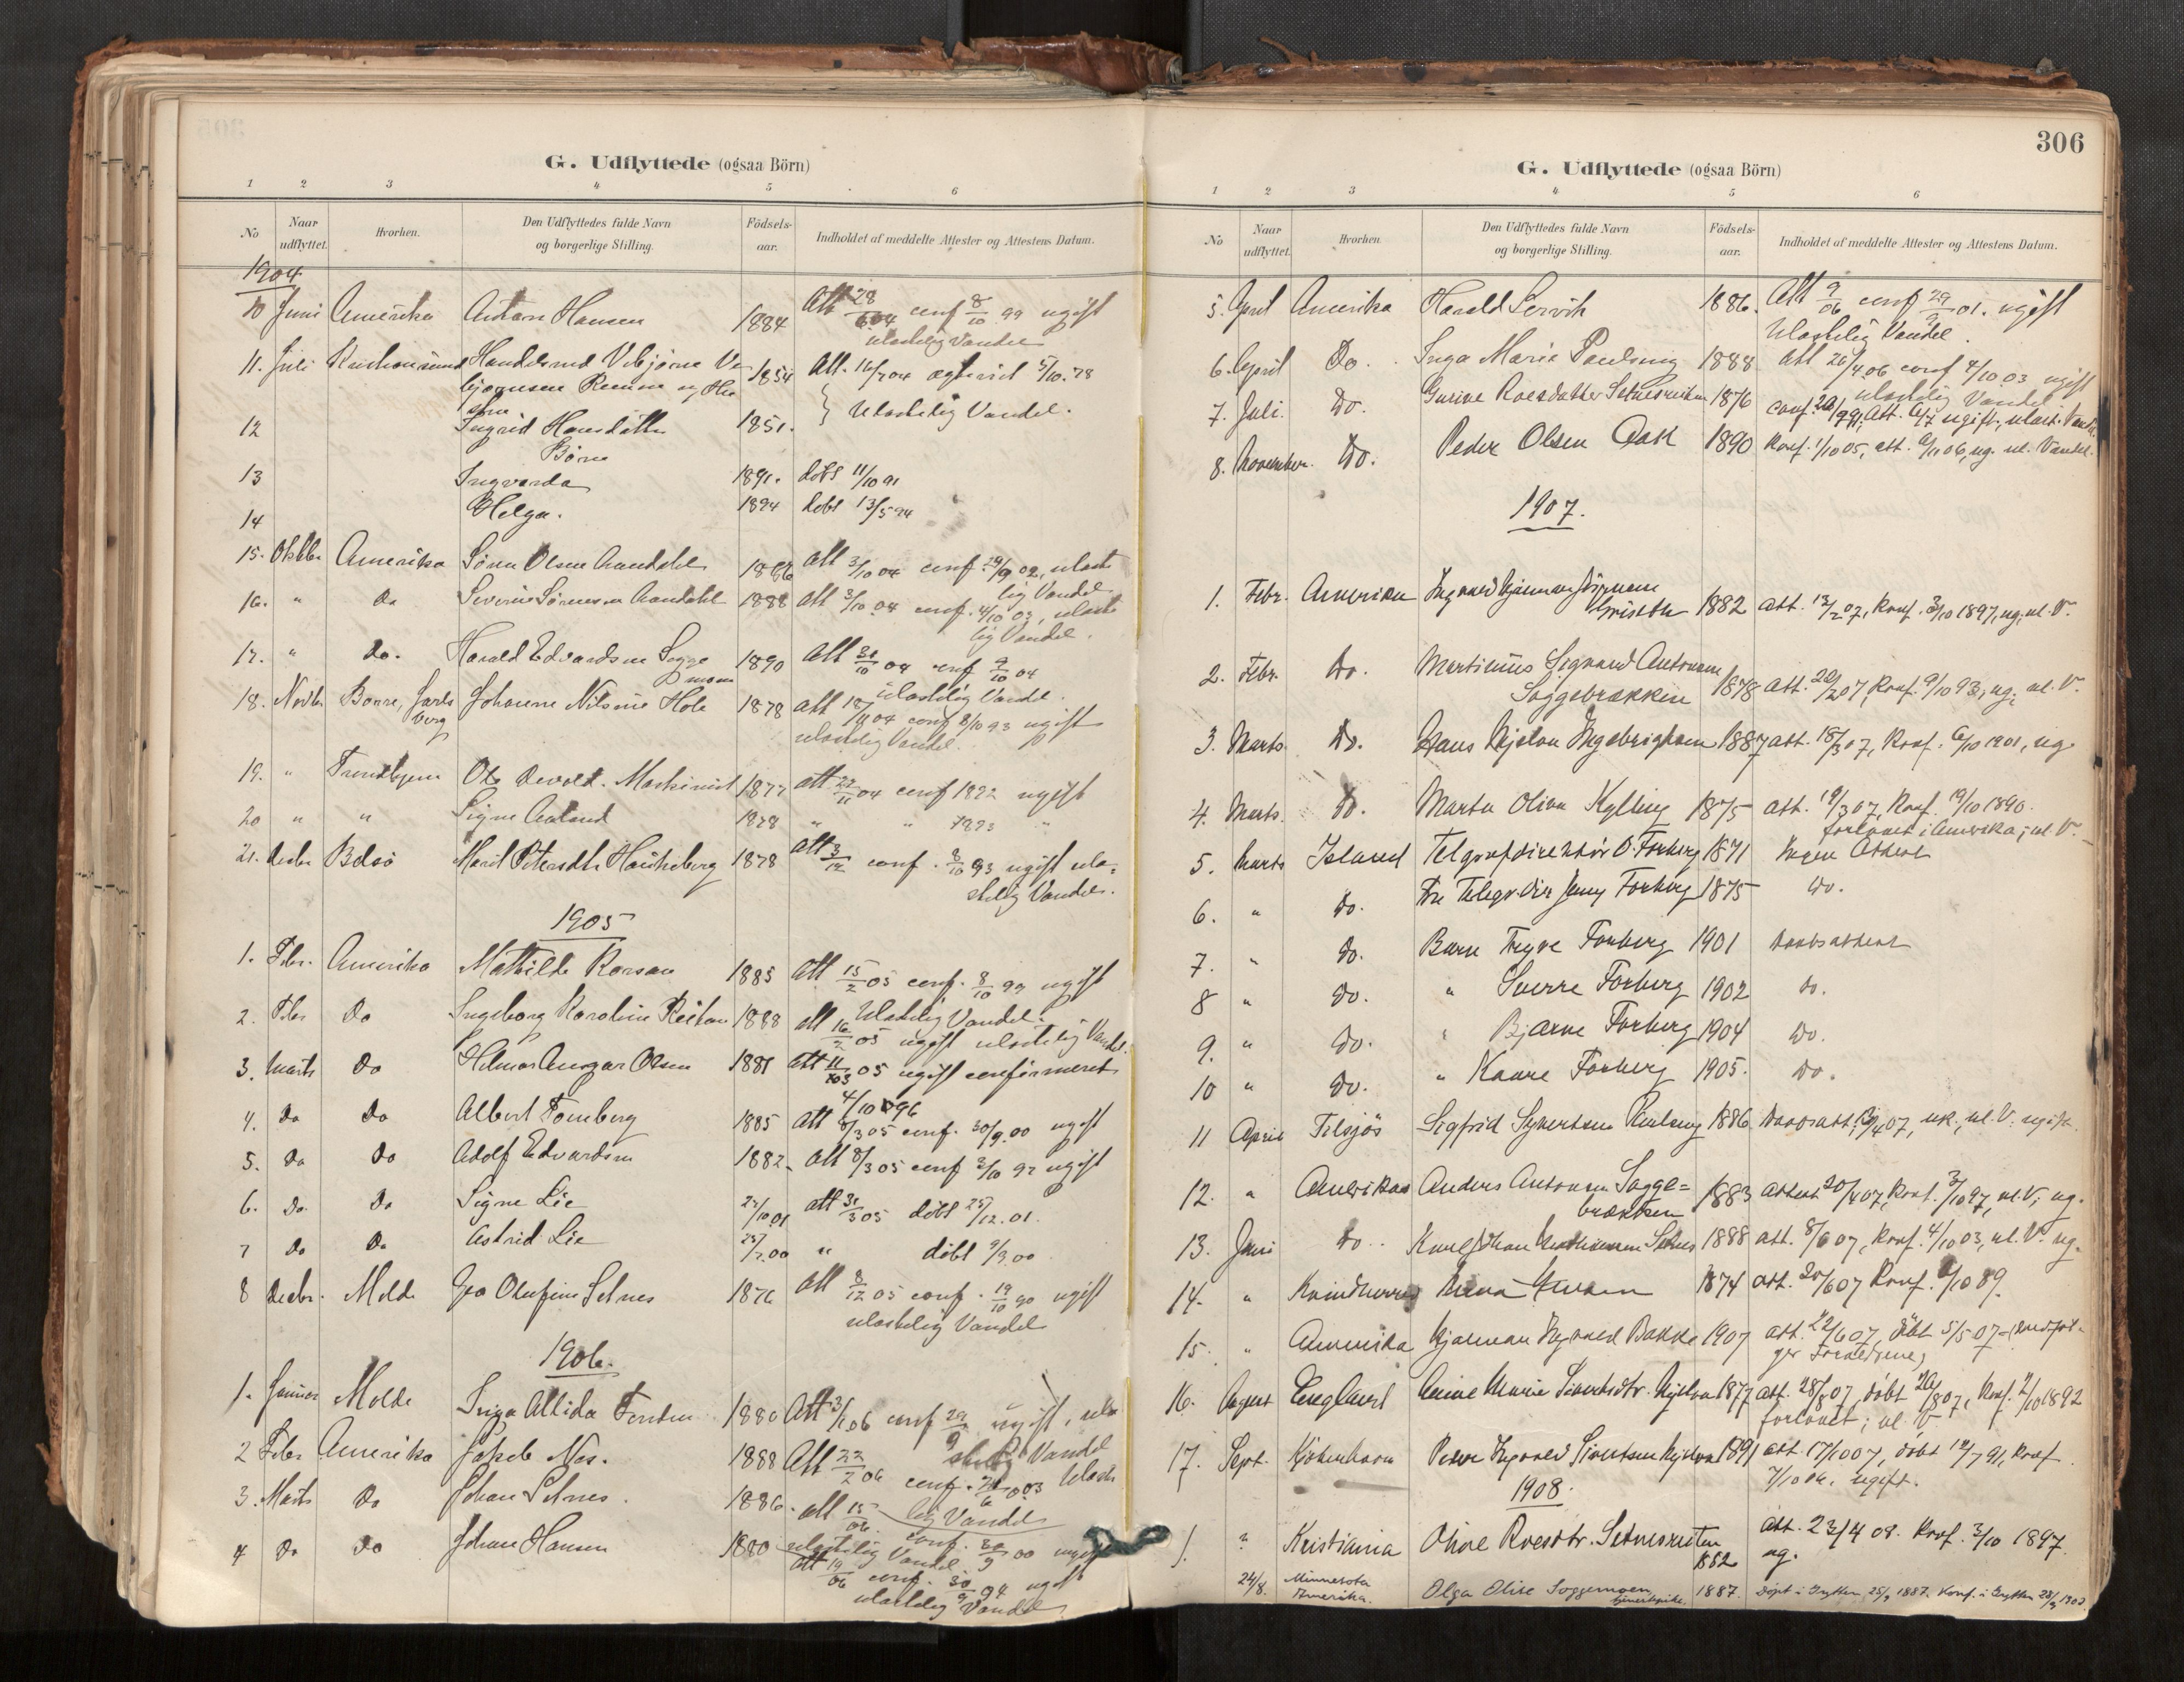 G. Udflyttede (ogsaa Börn)
1 2 3 4 5 6
No Naar udflyttet. Hvorhen. Den Udflyttedes fulde Navn og borgerlige Stilling. Födsels-aar. Indholdet af meddelte Attester og Attestens Datum.
1904
10 Juni Amerika Anton Hansen 1884 Att 28/6 04 conf 8/10 99 ugift
ulastelig Vandel
11. Juli Kristiansund Handelsmd Vebjørn Ve 1854 Att. 16/7 04 5/10.78
bjørnsen
12 Ingrid Hansdatter 1851. Ulastelig Vandel.
Børn
13 Ingvarda 1891. døbt 11/10 91
14 Helga. 1894 døbt 13/5 94
15. Oktbr Amerika Søren Olsen Aandahl 1886 Att 3/10 04 conf. 29/9 02, ulaste
lig Vandel
16. " Do Severin Sørensen Aandahl 1888 Att 3/10 04 conf. 4/10 03, ulaste
lig Vandel.
17. " Do. Harald Edvardsen Sogge 1890 Att 31/10 04 conf 9/10 04
moen ulastelig Vandel.
18. Novbr Borre, Jarls Johanne Nilsine Hole 1878 Att 18/11 04 conf 8/10 93 ugift
berg ulastelig Vandel.
19. " Trondhjem Ole Devold. Maskinist 1877 Att 22/11 04 conf 1892 ugift
20 " " Signe 1878 " " 1893 "
21. Decbr Bolsø Marit Petersdtr Haukeberg 1878 Att 3/12 conf. 8/10 93 ugift ula=
stelig Vandel.
1905
1. Febr. Amerika Mathilde 1885 Att 15/2 05 conf. 8/10 99 ugift
Ulastelig Vandel.
2. Febr Do Ingeborg Karoline Reitan 1888 Att 16/2 05 ugift ulastelig Vandel.
3. Marts Do Hilmar Ansgar Olsen 1881 Att 11/3 05 ugift confirmeret
4/10 96
4. Do Do Albert Tomberg 1885 Att 8/3 05 conf. 30/9.00 ugift
5. Do Do Adolf Edvardsen 1882. Att 8/3 05 conf 3/10 97 ugift
6. Do Do Signe Lie 24/10 01 Att 31/3 05 døbt 25/12.01.
7 Do Do Astrid Lie 25/2.00 " døbt 9/3 00
8 Decbr. Molde Olufine Setnes 1876 Att 8/12 05 conf. 19/10 90 ugift
ulastelig Vandel
1906.
1. Januar Molde Inga Alida 1880 Att 3/1 06 conf 29/9 ugift, ula
stelig Vandel
2 Febr Amerika Jakob Nes. 1888 Att 22/2 06 conf. 03 Ulaste
lig Vandel
3. Marts Do Johan Setnes. 1886. Att 15/06 conf. 30/9 00 ugift
ulastelig Vandel
4 Do Do Johan Hansen 1880 Att 19/06 conf. 30/9 94 ugift
ulastelig Vandel
306
G. Udflyttede (ogsaa Börn)
1 2 3 4 5 6
No Naar udflyttet. Hvorhen. Den Udflyttedes fulde Navn og borgerlige Stilling. Födsels-aar. Indholdet af meddelte Attester og Attestens Datum.
5. April Amerika Harald Servik 1886. Att 9/06 conf 29/9 01. ugift
Ulastelig Vandel.
6. April Do. Inga Marie Paulsen 1888 Att 26/4 06 conf 4/10 03 ugift
ulastelig Vandel
7. Juli Do. Gurine Roesdatter Setnesreiten 1876 conf. att. 6/7 ugift, ulast. Vandel.
8. November. Do. Peder Olsen Aak 1890 Konf. 1/10 05, att. 6/11 06, ug. ul. Vandel.
1907.
1. Febr. Amerika Ingvald Hjalmar Jørgensen 1882 att. 13/2 07, Konf. 3/10 1897, ug., ul. V.
2. Febr. Do. Martinus Sigvard Antonsen
Soggebrækken 1878 att. 22/2 07, Konf. 9/10 92, ug., ul. V.
3. Marts Do. Hans Hjelvn Ingebrigtsen 1887 att. 18/3 07, Konf. 6/10 1901, ug.
4. Marts. Do. Marta Olava Kylling 1875 att. 19/3 07, Konf. 19/10 1890.
forlovet i Amerika; ul. V.
5. Marts Island Telgrafdirektør O. Forberg 1871 Ingen Attest
6. " Do. Fru Telegr.dir Jenny Forberg 1875 Do.
7. " Do. Barn Trygve Forberg 1901 Daabsattest
8 " Do. " Sverre Forberg 1902 Do.
9. " Do. " Bjarne Forberg 1904 Do.
10 " Do. " Kaare Forberg 1905. Do.
11 April Tilsjös Sigfrid Syvertsen Paulseng 1886 Daabsatt. 13/4 07, uk., ul. V. ugift.
12. " Amerika Anders Antonsen Sogge=
brækken 1883 attest 20/4 07, Konf. 3/10 97, ul. V; ug.
13. Juni Do. Karl Johan Mathiassen Setnes 1888 att. 8/6 07, Konf. 4/10 03, ul. V. ug.
14. " Kvindherred Anna 1874 att. 20/6 07 Konf. 6/10 89.
15. " Amerika Hjalmar Ingvald Bakke 1907 att. 22/6 07, døbt 5/5 07 - (medføl-
ger Forældrene)
16. August England Anne Marie Sivertsdtr. Hjelvn 1877 att. 28/8 07, døbt 26/8 07, Konf. 2/10 1892
forlovet; ul. V.
17. Sept. Kjøbenhavn Peder Ingvald Sivertsen Hjelvn 1891 att. 17/10 07, døbt 12/7 91, Konf.
7/10 06. ugift.
1908.
1. " Kristiania Olive Roesdtr. Setnesreiten
1882 att. 23/4 08. Konf. 3/10 1897.
ug.
24/8. Minnesota
Amerika. Olga Olise Soggemoen, 1887. Døpt i Grytten 25/9 1887. Konf. i Grytten 28/9 1902.